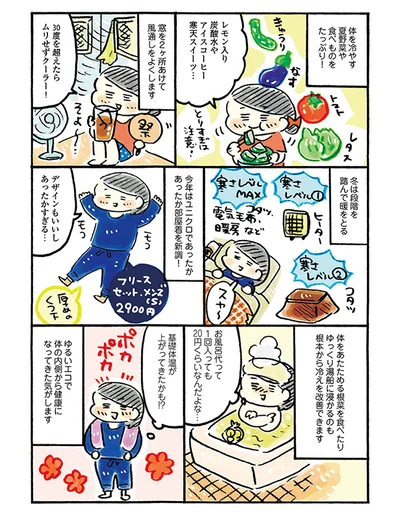 体を冷やす
夏野菜や
食べものを
たっぷり！
きゅうり
なす
トマト
レタス
とりすぎは
注意！
レモン入り
炭酸水や
アイスコーヒー
寒天スイーツ…
窓を2ヶ所あけて
風通しをよくします
30度を超えたら
ムリせずクーラー！
祭
そよ〜
冬は段階を
踏んで暖をとる
寒さ
レベル①
ヒーター
寒さ
レベル②
コタツ
寒さレベル
MAX
コタツ、
電気毛布、
暖房 など
今年はユニクロであったか
あったか部屋着を新調！
デザインもいいし
あったかすぎる…
モコ
モコ
フリース
セット メンズ
(S)
2900円
厚めの
くつ下
体をあたためる根菜を食べたり
ゆっくり湯船に浸かるのも
根本から冷えを改善できます
お風呂代って
1回入っても
20円くらいなんだよな…
基礎体温が
上がってきたかも!?
ポカ
ポカ
ゆるいエコで
体の内側から健康に
なってきた気がします